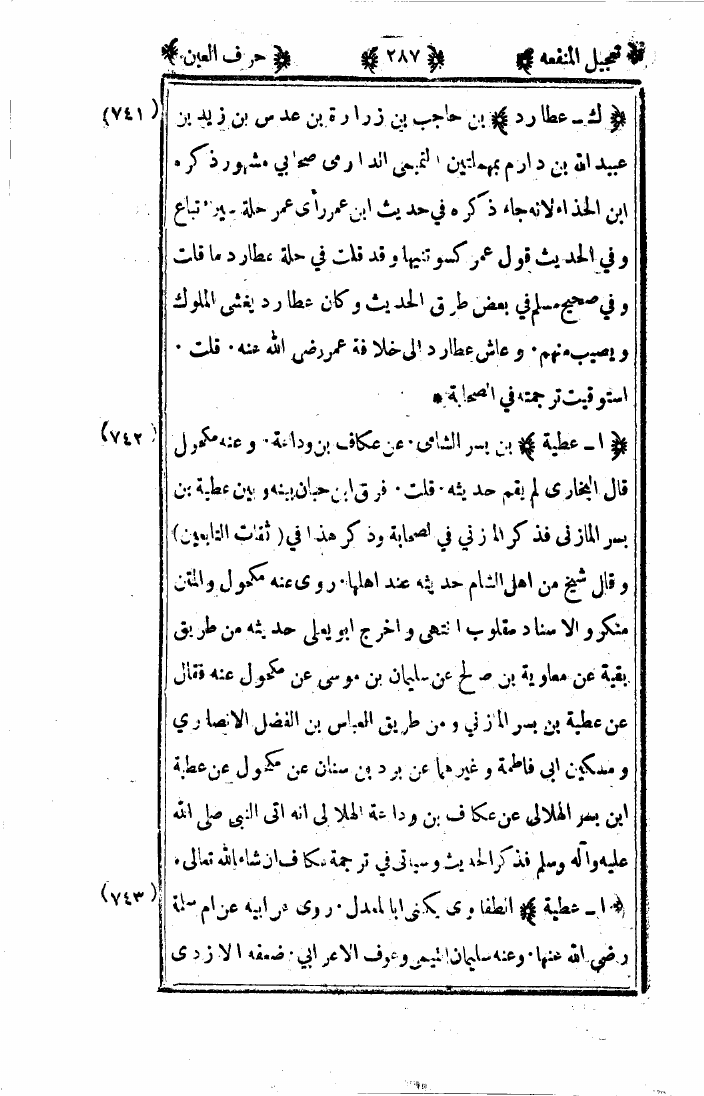 ﴿ تعجيل المنفعه ﴾ ﴿ ٢٨٧ ﴾ ﴿ حرف العين ﴾
﴿ ك ـ عطارد ﴾ بن حاجب بن زرارة بن عدس بن زيد بن (٧٤١)
عبيد الله بن دارم بمهملتين التميمي الدارمى صحابي مشهور ذكره
ابن الحذاء لانه جاء ذكره في حديث ابن عمر رأى عمر حلة سيراء تباع
وفي الحديث قول عمر كسوتنيها وقد قلت في حلة عطارد ما قلت
وفي صحيح مسلم في بعض طرق الحديث وكان عطارد يغشى الملوك
ويصيب منهم · وعاش عطارد الى خلافة عمر رضى الله عنه · قلت ·
استوفيت ترجمته في الصحابة *
﴿ ا ـ عطية ﴾ بن بسر الشامى · عن عكاف بن وداعة · وعنه مكحول (٧٤٢)
قال البخارى لم يقم حديثه · قلت · فرق ابن حبان بينه وبين عطية بن
بسر المازنى فذكر المازني في الصحابة وذكر هذا في ( ثقات التابعين )
وقال شيخ من اهل الشام حديثه عند اهلها · روى عنه مكحول والمتن
منكر والاسناد مقلوب انتهى واخرج ابو يعلى حديثه من طريق
بقية عن معاوية بن صالح عن سليمان بن موسى عن مكحول عنه فقال
عن عطية بن بسر المازني ومن طريق العباس بن الفضل الانصاري
ومسكين ابى فاطمة وغيرهما عن برد بن سنان عن مكحول عن عطية
ابن بسر الهلالى عن عكاف بن وداعة الهلالى انه اتى النبى صلى الله
عليه وآله وسلم فذكر الحديث وسياتى في ترجمة عكاف ان شاء الله تعالى ·
﴿ ا ـ عطية ﴾ الطفاوى يكنى ابا المعدل · روى عن ابيه عن ام سلمة (٧٤٣)
رضي الله عنها · وعنه سليمان التيمى وعوف الاعرابي · ضعفه الازدى